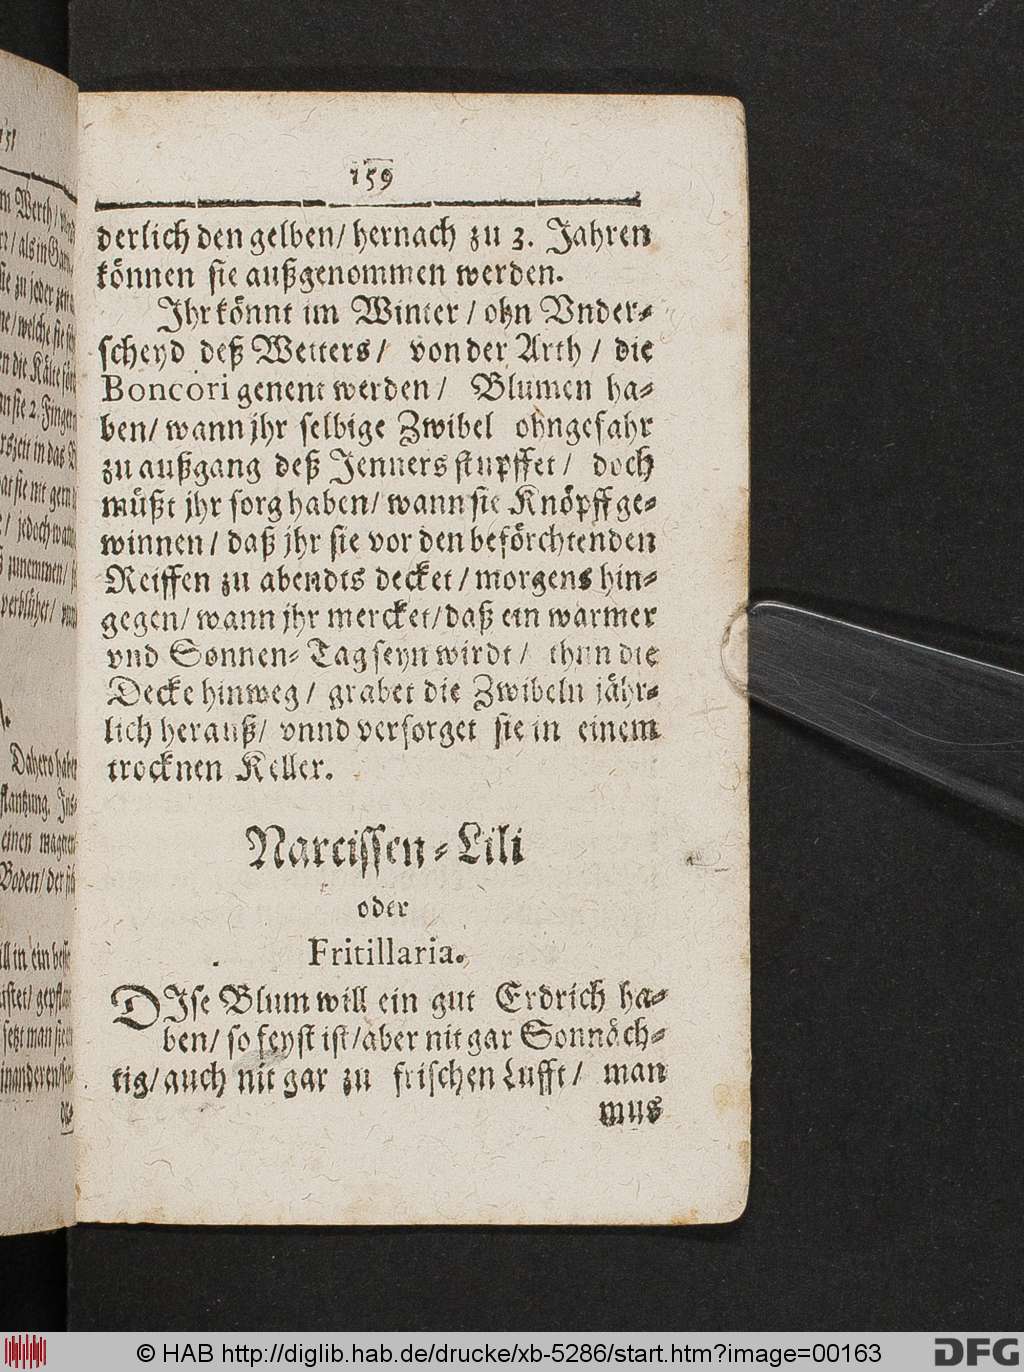 159
derlich den gelben/ hernach zu 3. Jahren
können sie außgenommen werden.
Ihr könnt im Winter / ohn Vnder-
scheyd deß Wetters / von der Arth / die
Boncori genent werden / Blumen ha-
ben/ wann jhr selbige Zwibel ohngefahr
zu außgang deß Jenners stupffet / doch
müßt jhr sorg haben/ wann sie Knöpff ge-
winnen / daß jhr sie vor den beförchtenden
Reiffen zu abendts decket / morgens hin-
gegen/ wann jhr mercket/ daß ein warmer
vnd Sonnen-Tag seyn wirdt / thun die
Decke hinweg / grabet die Zwibeln jähr-
lich herauß/ vnnd versorget sie in einem
trocknen Keller.
Narcissen-Lili
oder
Fritillaria.
DIse Blum will ein gut Erdrich ha-
ben/ so feyst ist/ aber nit gar Sonnäch-
tig/ auch nit gar zu frischen Lufft / man
mus
© HAB http://diglib.hab.de/drucke/xb-5286/start.htm?image=00163
DFG